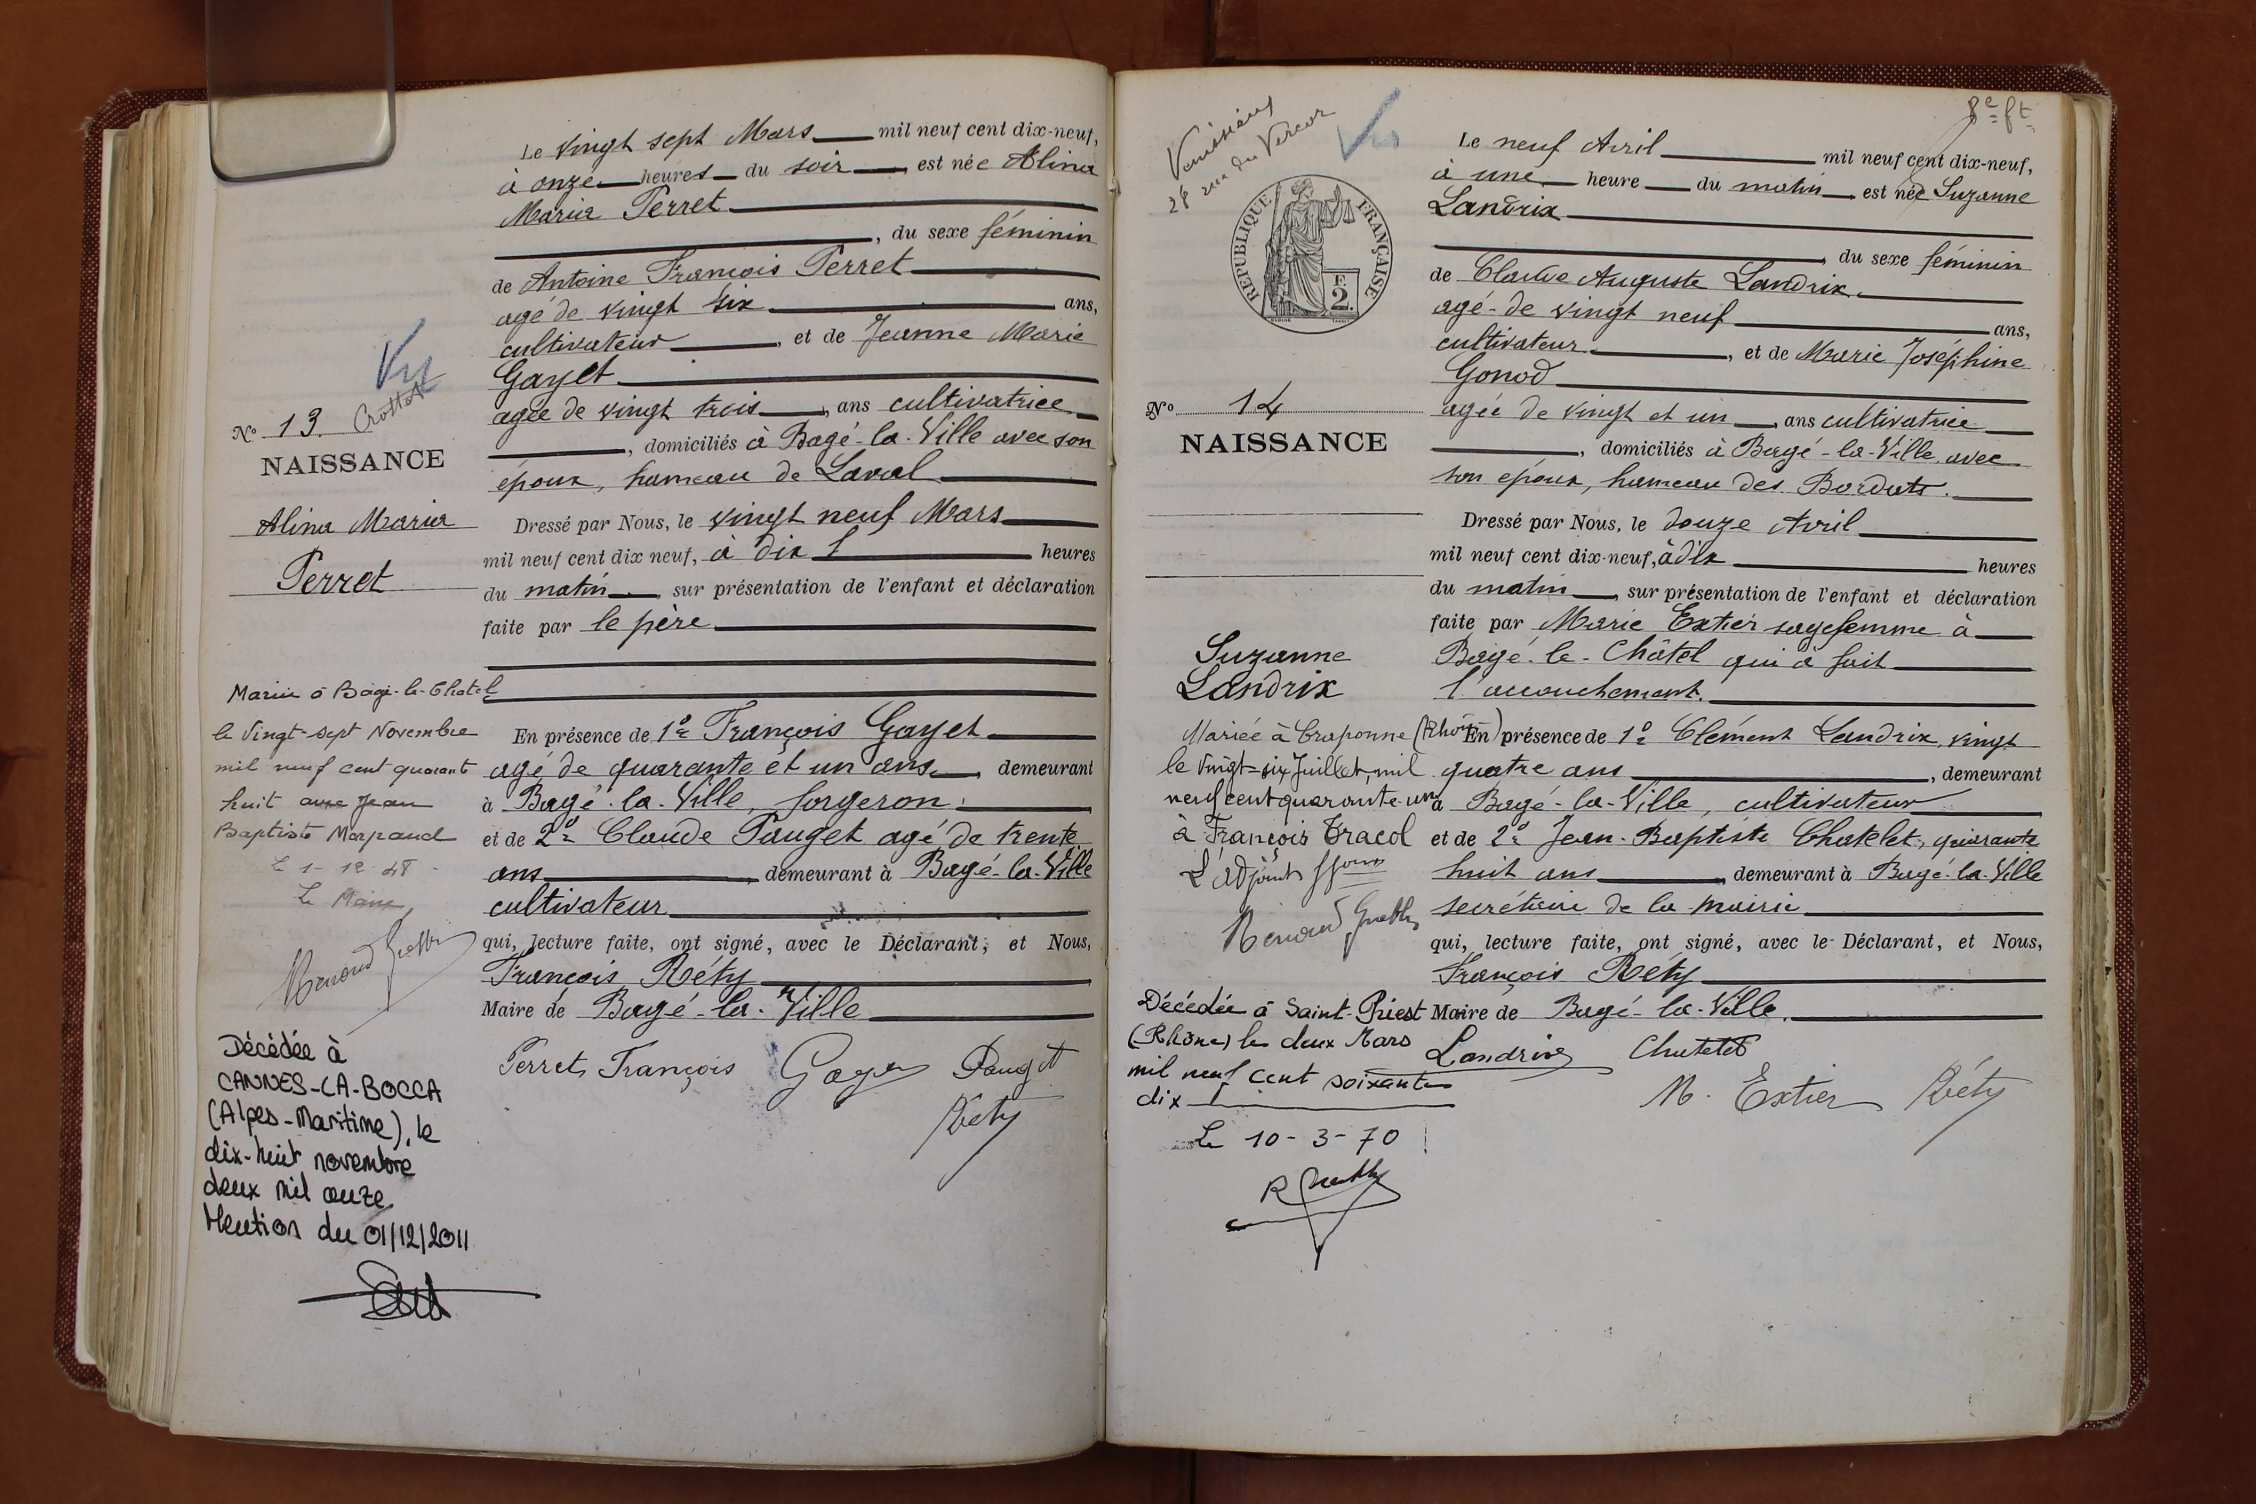 Le vingt sept Mars mil neuf cent dix-neuf,
à onze heures du soir, est née Alina
Maria Perret
, du sexe féminin
de Antoine François Perret
agé de vingt six ans,
cultivateur, et de Jeanne Marie
Gayet
agée de vingt trois, ans cultivatrice
, domiciliés à Bagé-la-Ville avec son
époux, hameau de Laval
Dressé par Nous, le vingt neuf Mars
mil neuf cent dix neuf, à dix heures
du matin, sur présentation de l'enfant et déclaration
faite par le père
En présence de 1º François Gayet
agé de quarante et un ans, demeurant
à Bagé-la-Ville, forgeron,
et de 2º Claude Pauget agé de trente
ans, demeurant à Bagé-la-Ville
cultivateur
qui, lecture faite, ont signé, avec le Déclarant, et Nous,
François Réty
Maire de Bagé-la-Ville
Perret François Gayet Pauget
Réty
Vu
Crottet
Nº 13.
NAISSANCE
Alina Maria
Perret
Mariée à Bagé-le-Chatel
le vingt-sept Novembre
mil neuf cent quarante
huit avec Jean
Baptiste Morpaud
Le 1-12-48
Le Maire,
Décédée à
CANNES-LA-BOCCA
(Alpes-Maritime), le
dix-huit novembre
deux mil onze.
Mention du 01/12/2011
8e ft
Vénissieux
28 rue du Vercor
Vu
RÉPUBLIQUE FRANÇAISE
E
2.
Le neuf Avril mil neuf cent dix-neuf,
à une heure du matin, est née Suzanne
Landrix
, du sexe féminin
de Claude Auguste Landrix
agé de vingt neuf ans,
cultivateur, et de Marie Joséphine
Gonod
agée de vingt et un, ans cultivatrice
, domiciliés à Bagé-la-Ville avec
son époux, hameau des Bordats.
Dressé par Nous, le douze Avril
mil neuf cent dix-neuf, à dix heures
du matin, sur présentation de l'enfant et déclaration
faite par Marie Extier sagefemme à
Bagé-le-Châtel qui a fait
l'accouchement.
En présence de 1º Clément Landrix, vingt
quatre ans, demeurant
à Bagé-la-Ville, cultivateur
et de 2º Jean-Baptiste Chatelet, quarante
huit ans, demeurant à Bagé-la-Ville
secrétaire de la mairie
qui, lecture faite, ont signé, avec le Déclarant, et Nous,
François Réty
Maire de Bagé-la-Ville.
Landrix Chatelet
M. Extier Réty
Nº 14
NAISSANCE
Suzanne
Landrix
Mariée à Craponne (Rhône)
le vingt-six Juillet mil
neuf cent quarante-un
à François Tracol
L'adjoint
Décédée à Saint-Priest
(Rhône) le deux Mars
mil neuf cent soixante
dix
Le 10-3-70